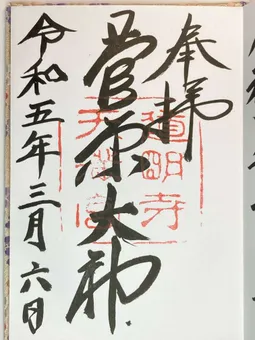 奉拝
菅原大神
令和五年三月六日
道明寺
天満宮